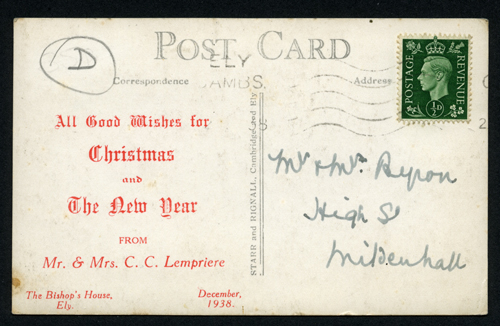 D
POST CARD
ELY
CAMBS.
Correspondence
Address
POSTAGE
REVENUE
½D
All Good Wishes for
Christmas
and
The New Year
FROM
Mr. & Mrs. C. C. Lempriere
The Bishop's House,
Ely.
December,
1938.
STARR and RIGNALL, Cambridge and Ely
Mr & Mrs Byron
High St
Mildenhall